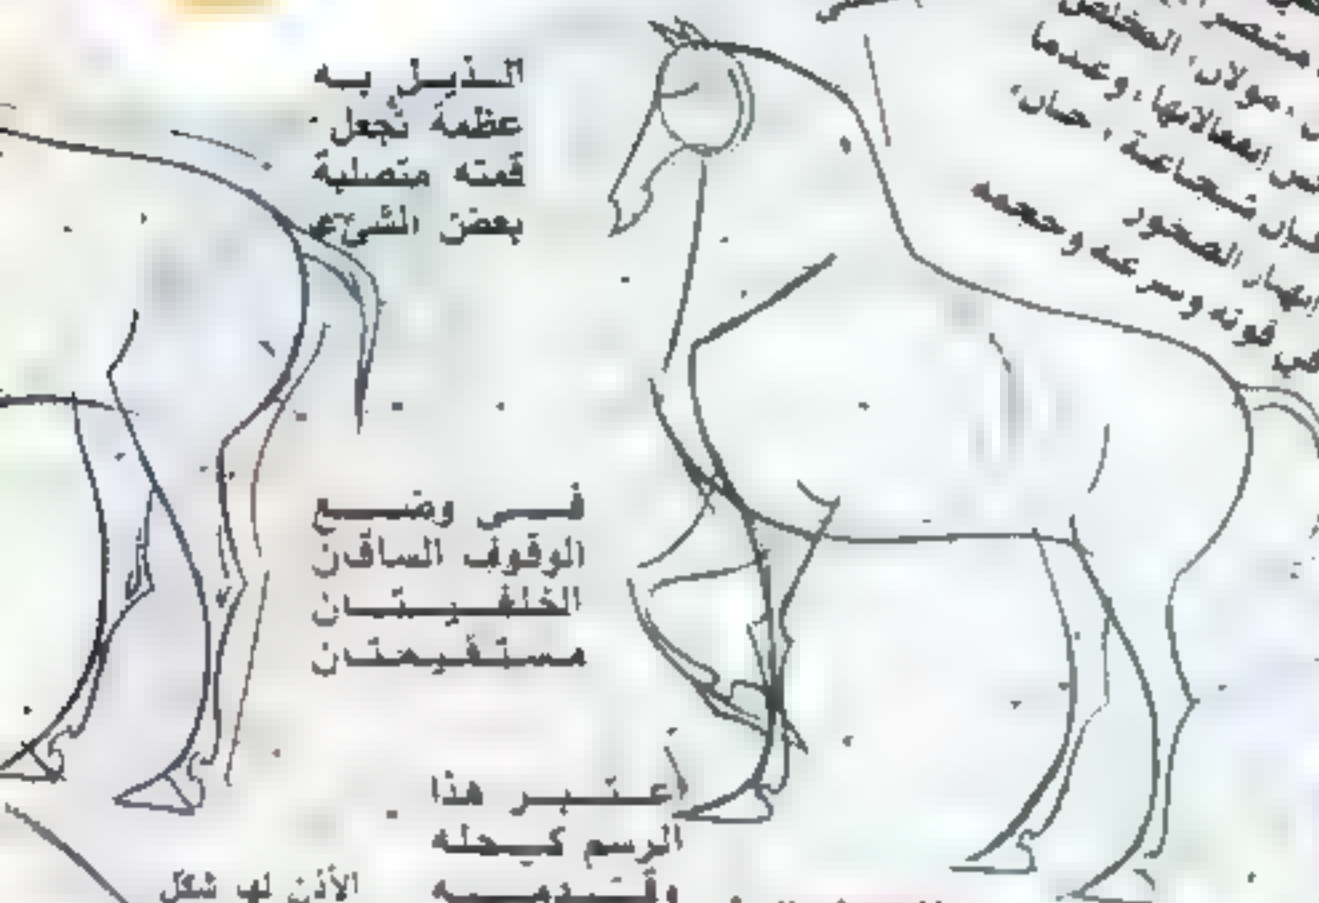 الذيل به
عظمة تجعل
قمته متصلبة
بعض الشيء
متصرا
، مولان، المخلص
إنفعالاتها، وعندما
شجاعة، خان،
إبهار الصخور
في قوته وسرعه وحجمه
في وضع
الوقوف الساقان
الخلفيتان
مستقيمتان
اعتبر هذا
الرسم كحله
وقدميه
الأذن لها شكل